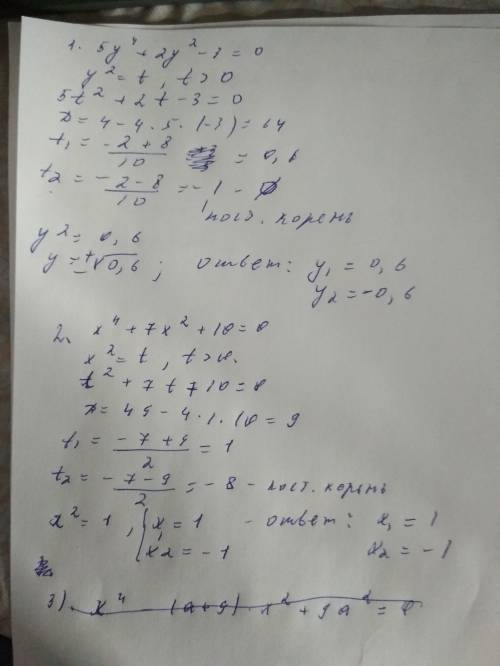 1. 5y⁴ + 2y² - 3 = 0
y² = t, t > 0
5t² + 2t - 3 = 0
D = 4 - 4 · 5 · (-3) = 64
t₁ = (-2 + 8)/10 = 0,6
t₂ = -(2 - 8)/10 = -1 - ∅
пост. корень
y² = 0,6
y = ±√0,6 ; ответ: y₁ = 0,6
y₂ = -0,6
2. x⁴ + 7x² + 10 = 0
x² = t, t > 0.
t² + 7t 7 10 = 0
D = 49 - 4 · 1 · 10 = 9
t₁ = (-7 + 9)/2 = 1
t₂ = (-7 - 9)/2 = -8 - пост. корень
x² = 1, { x₁ = 1 - ответ: x₁ = 1
x₂ = -1 x₂ = -1
3) x⁴ - (a + 9) x² + 9a² = 0